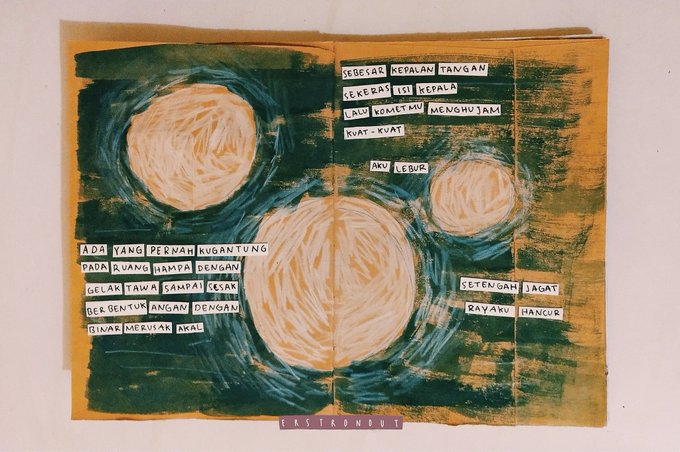 ADA YANG PERNAH KUGANTUNG
PADA RUANG HAMPA DENGAN
GELAK TAWA SAMPAI SESAK
BERBENTUK ANGAN DENGAN
BINAR MERUSAK AKAL
SEBESAR KEPALAN TANGAN
SEKERAS ISI KEPALA
LALU KOMETMU MENGHUJAM
KUAT-KUAT
AKU LEBUR
SETENGAH JAGAT
RAYAKU HANCUR
EKSTRONOUT